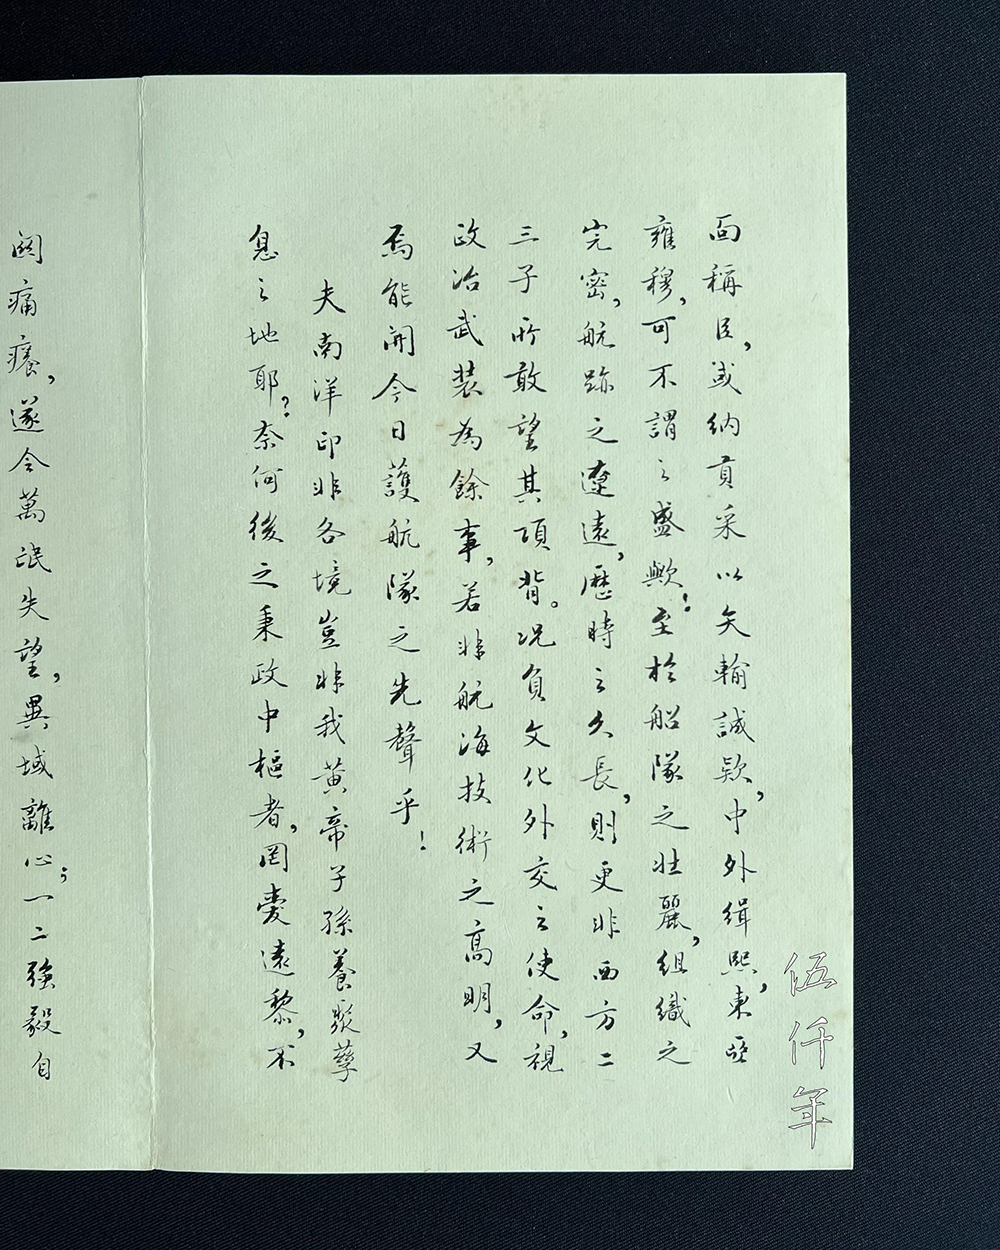 面稱臣,或納貢采以矢輸誠欵,中外緝熙,東亞
雍穆,可不謂之盛歟!至於船隊之壯麗,組織之
完密,航跡之遼遠,歷時之久長,則更非西方二
三子所敢望其項背。況負文化外交之使命,視
政治武裝為餘事,若非航海技術之高明,又
焉能開今日護航隊之先聲乎!
夫南洋印非各境豈非我黃帝子孫養聚孳
息之地耶?奈何後之秉政中樞者,罔愛遠黎,不
關痛癢,遂令萬氓失望,異域離心;一二強毅自
伍仟年